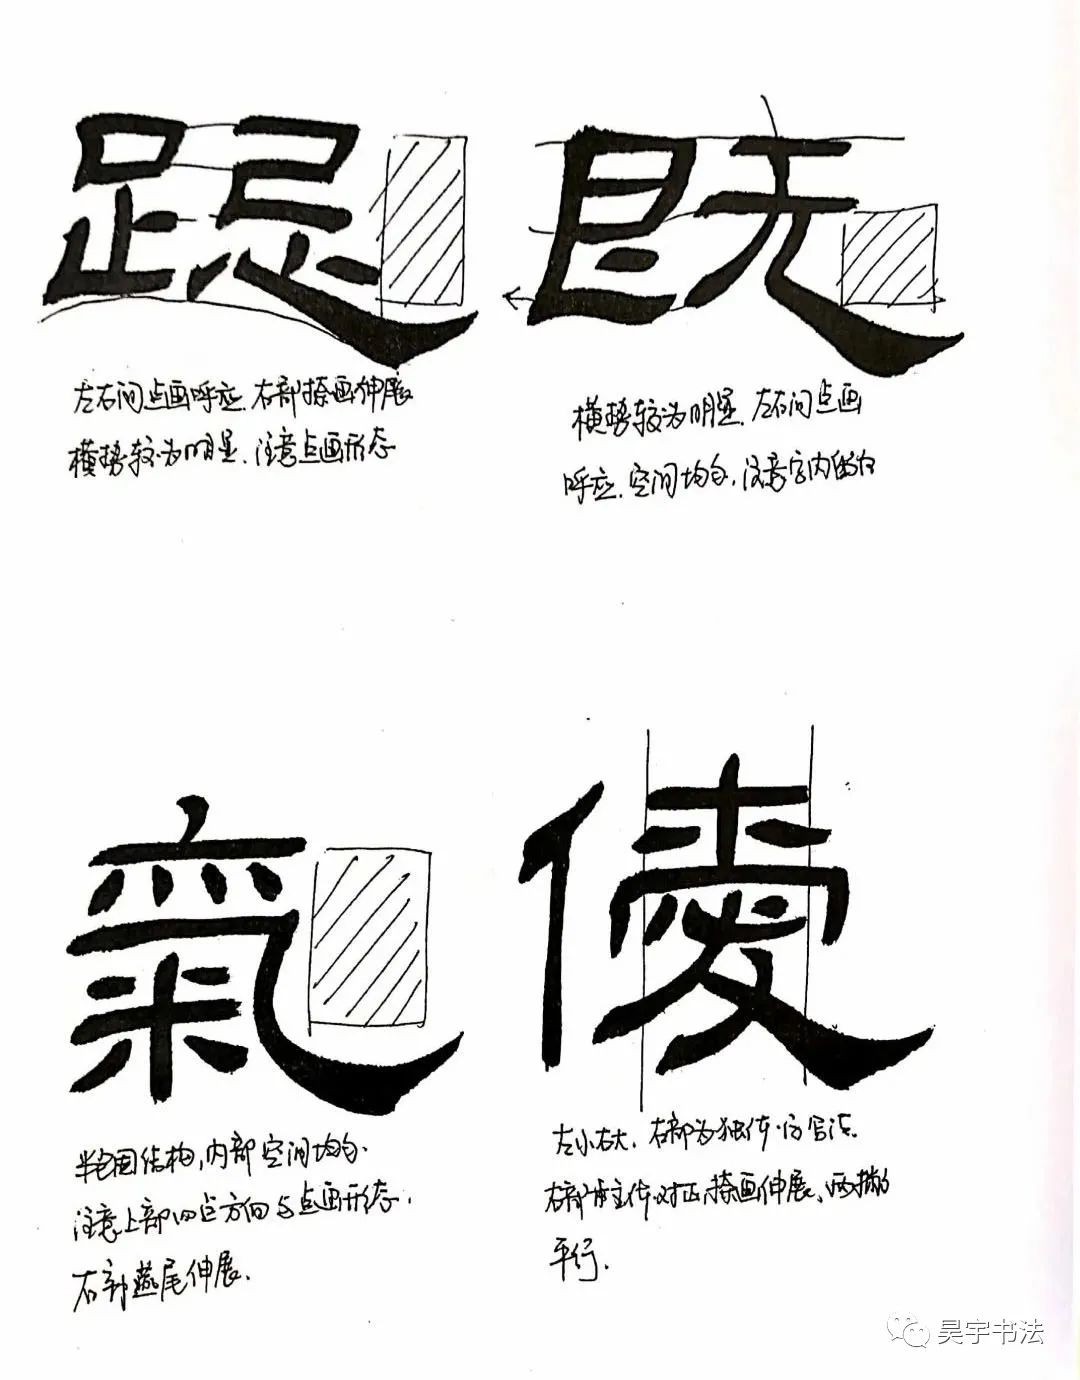 跽
既
左右间点画呼应.右部捺画伸展
横势较为明显.注意点画形态
横势较为明显.左右间点画
呼应.空间均匀.注意字内留白
氣
半包围结构,内部空间均匀.
注意上部四点方向与点画形态.
右部燕尾伸展.
左小右大.右部为独体字写法.
右部主体对正.捺画伸展、两撇
平行.
昊宇书法